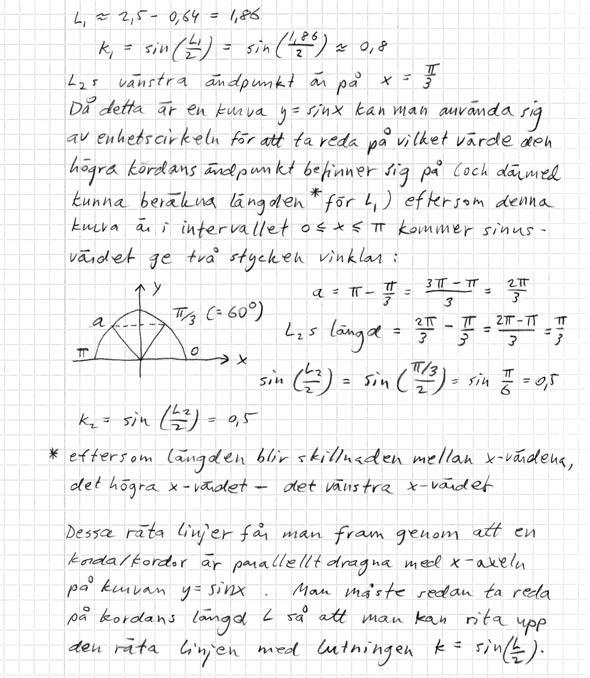 L₁ ≈ 2,5 - 0,64 = 1,86
k₁ = sin(L₁/2) = sin(1,86/2) ≈ 0,8
L₂s vänstra ändpunkt är på x = π/3
Då detta är en kurva y = sinx kan man använda sig
av enhetscirkeln för att ta reda på vilket värde den
högra kordans ändpunkt befinner sig på (och därmed
kunna beräkna längden* för L₁) eftersom denna
kurva är i intervallet 0 ≤ x ≤ π kommer sinus-
värdet ge två stycken vinklar:
y
a π/3 (= 60°)
π 0 x
a = π - π/3 = 3π - π/3 = 2π/3
L₂s längd = 2π/3 - π/3 = 2π - π/3 = π/3
sin (L₂/2) = sin (π/3/2) = sin π/6 = 0,5
k₂ = sin (L₂/2) = 0,5
* eftersom längden blir skillnaden mellan x-värdena,
det högra x-värdet – det vänstra x-värdet
Dessa räta linjer får man fram genom att en
korda/kordor är parallellt dragna med x-axeln
på kurvan y = sinx. Man måste sedan ta reda
på kordans längd L så att man kan rita upp
den räta linjen med lutningen k = sin(L/2).